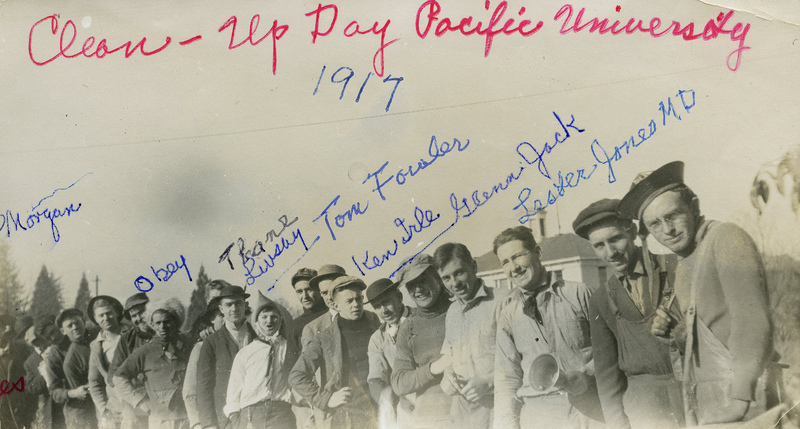 Clean-Up Day Pacific University
1917
Morgan
Obey
Thane
Livsby
Tom Fowler
Ken Irle
Glenn Jack
Lester Jones MD
es